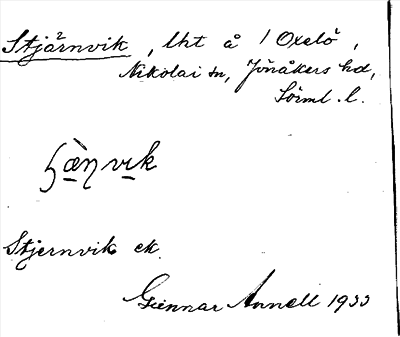 Stjärnvik, lht å / Oxelö,
Nikolai sn, Jönåkers hd,
Sörml. l.
ɧæ̀ɳvik
Stjernvik ek.
Gunnar Annell 1933